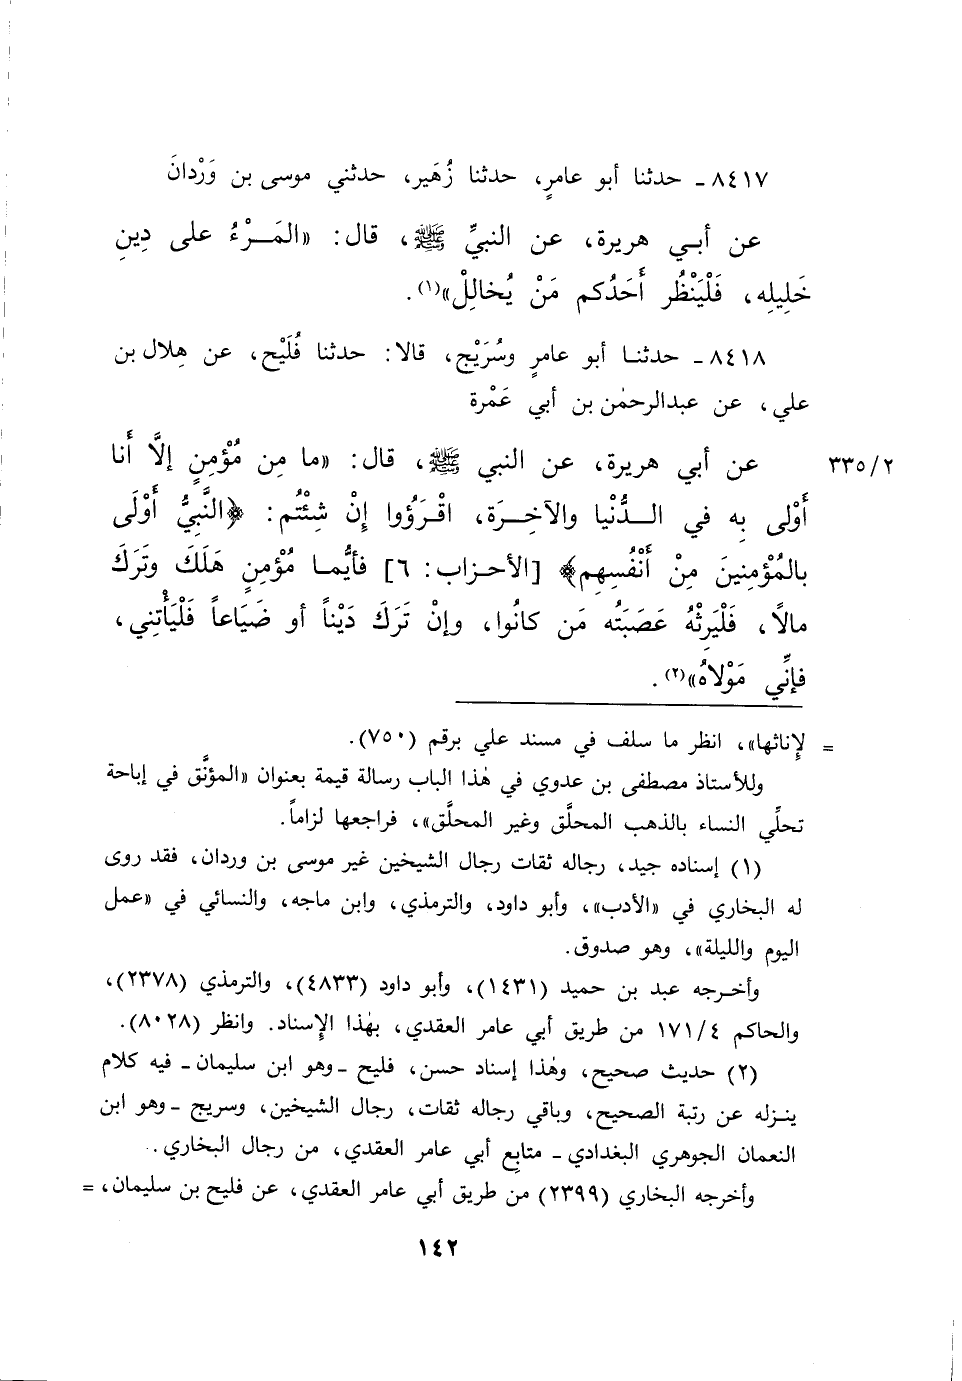 ٨٤١٧ - حدثنا أبو عامرٍ، حدثنا زُهَير، حدثني موسى بن وَرْدانَ
عن أبـي هريرة، عن النبيِّ ﷺ، قال: «المَـرْءُ على دِينِ
خَلِيلِه، فَلْيَنْظُر أَحَدُكم مَنْ يُخالِلْ»(١).
٨٤١٨ - حدثنـا أبو عامرٍ وسُرَيْج، قالا: حدثنا فُلَيْح، عن هِلال بن
علي، عن عبدالرحمٰن بن أبي عَمْرة
٣٣٥/٢ عن أبي هريرة، عن النبي ﷺ، قال: «ما مِن مُؤْمِنٍ إلَّا أَنا
أَوْلى بِه في الـدُّنْيا والآخِـرَة، اقْـرَؤُوا إنْ شِئْتُم: ﴿النَّبِيُّ أَوْلَى
بالمُؤْمِنينَ مِنْ أَنْفُسِهِم﴾ [الأحـزاب: ٦] فأيُّمـا مُؤْمِنٍ هَلَكَ وتَرَكَ
مالًا، فَلْيَرِثْهُ عَصَبَتُه مَن كانُوا، وإنْ تَرَكَ دَيْناً أو ضَيَاعاً فَلْيَأْتِني،
فإنِّي مَوْلاهُ»(٢).
= لإناثها»، انظر ما سلف في مسند علي برقم (٧٥٠).
وللأستاذ مصطفى بن عدوي في هٰذا الباب رسالة قيمة بعنوان «المؤنَّق في إباحة
تحلِّي النساء بالذهب المحلَّق وغير المحلَّق»، فراجعها لزاماً.
(١) إسناده جيد، رجاله ثقات رجال الشيخين غير موسى بن وردان، فقد روى
له البخاري في «الأدب»، وأبو داود، والترمذي، وابن ماجه، والنسائي في «عمل
اليوم والليلة»، وهو صدوق.
وأخـرجه عبد بن حميد (١٤٣١)، وأبو داود (٤٨٣٣)، والترمذي (٢٣٧٨)،
والحاكم ١٧١/٤ من طريق أبي عامر العقدي، بهٰذا الإسناد. وانظر (٨٠٢٨).
(٢) حديث صحيح، وهٰذا إسناد حسن، فليح - وهو ابن سليمان - فيه كلام
ينـزله عن رتبة الصحيح، وباقي رجاله ثقات، رجال الشيخين، وسريج - وهو ابن
النعمان الجوهري البغدادي - متابع أبي عامر العقدي، من رجال البخاري.
وأخرجه البخاري (٢٣٩٩) من طريق أبي عامر العقدي، عن فليح بن سليمان، =
١٤٢